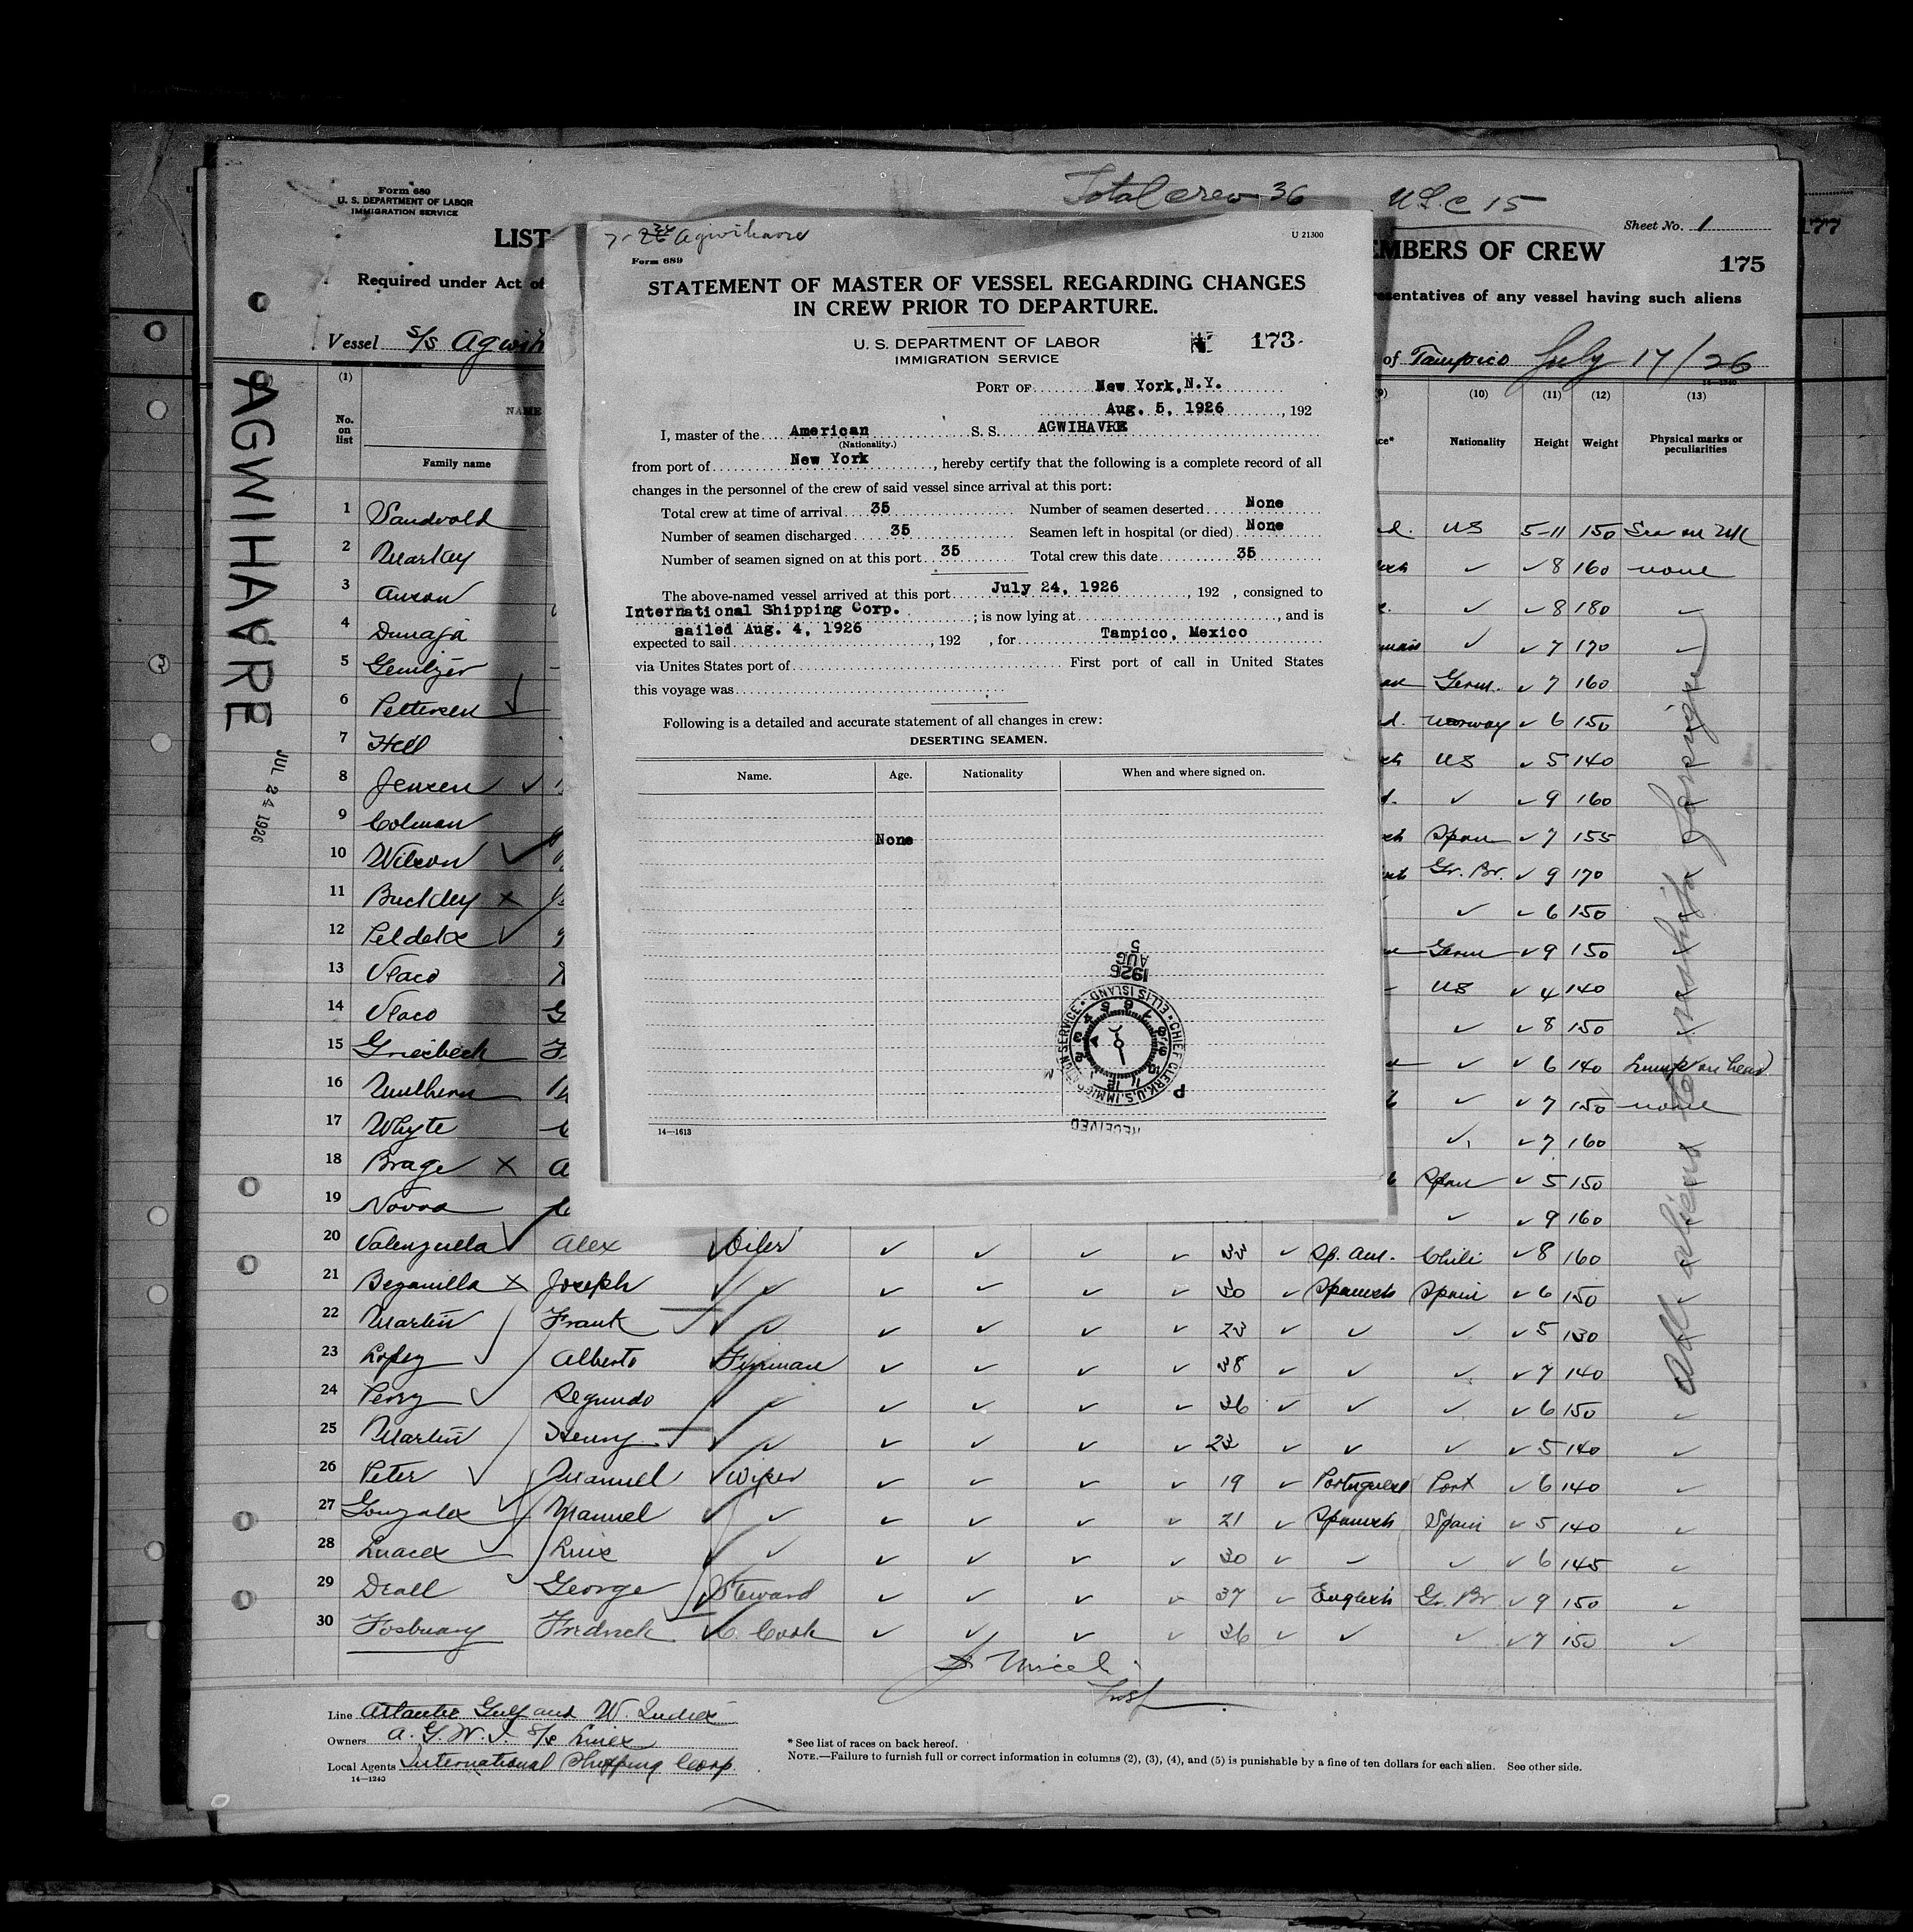 Form 680
U. S. DEPARTMENT OF LABOR
IMMIGRATION SERVICE
Total crew 36
U.S.C 15
Sheet No. 1
177
LIST
MBERS OF CREW
175
Required under Act of
esentatives of any vessel having such aliens
Vessel S/S Agwih
of Tampico July 17/26
14—1240
AGWIHAVRE
JUL 24 1926
7-24-26 Agwihavre
U 21300
Form 689
STATEMENT OF MASTER OF VESSEL REGARDING CHANGES
IN CREW PRIOR TO DEPARTURE.
U. S. DEPARTMENT OF LABOR
IMMIGRATION SERVICE
173
PORT OF New York, N.Y.
Aug. 5, 1926, 192
I, master of the American S. S. AGWIHAVRE
(Nationality.)
from port of New York, hereby certify that the following is a complete record of all
changes in the personnel of the crew of said vessel since arrival at this port:
Total crew at time of arrival 35 Number of seamen deserted None
Number of seamen discharged 35 Seamen left in hospital (or died) None
Number of seamen signed on at this port 35 Total crew this date 35
The above-named vessel arrived at this port July 24, 1926, 192 , consigned to
International Shipping Corp. ; is now lying at , and is
expected to sail sailed Aug. 4, 1926, 192 , for Tampico, Mexico
via Unites States port of First port of call in United States
this voyage was
Following is a detailed and accurate statement of all changes in crew:
DESERTING SEAMEN.
Name. Age. Nationality When and where signed on.
None
5
AUG
1926
CHIEF CLERK, U.S. IMMIGRATION SERVICE • ELLIS ISLAND •
P
RECEIVED
14—1613
(1) (10) (11) (12) (13)
No. on list NAME
Family name
Nationality Height Weight Physical marks or peculiarities
1 Sandvold d. US 5-11 150
2 Markay ✓ ✓ 8 160 none
3 Anton ✓ ✓ 8 180 ✓
4 Dunaja ✓ ✓ 7 170 ✓
5 Germ. ✓ 7 160
6 Pettersen ✓ d. Norway ✓ 6 150
7 Hell US ✓ 5 140
8 Jensen ✓ d. ✓ ✓ 9 160
9 Colman Span ✓ 7 155
10 Wilson ✓ Gr. Br. ✓ 9 170
11 Buckley X ✓ ✓ 6 150
12 ✓ Germ ✓ 9 150
13 Vlaco US ✓ 4 140
14 Vlaco G ✓ ✓ 8 150
15 Griesbeck F ✓ ✓ 6 140 on head
16 Mulhern ✓ ✓ 7 150 none
17 Whyte ✓ ✓ 7 160
18 Brage X a Span ✓ 5 150
19 Novoa ✓ ✓ 9 160
20 Valenzuela ✓ Alex Oiler ✓ ✓ ✓ ✓ 33 ✓ Sp. Am. Chili ✓ 8 160
21 Bezanilla X Joseph ✓ ✓ ✓ ✓ ✓ 30 ✓ Spanish Spain ✓ 6 150
22 Martin Frank ✓ ✓ ✓ ✓ ✓ 23 ✓ ✓ ✓ ✓ 5 130
23 Lopez ✓ Alberto Fireman ✓ ✓ ✓ ✓ 38 ✓ ✓ ✓ ✓ 7 140
24 Perry ✓ Segundo ✓ ✓ ✓ ✓ ✓ 36 ✓ ✓ ✓ ✓ 6 150 ✓
25 Martin Henry ✓ ✓ ✓ ✓ ✓ 23 ✓ ✓ ✓ ✓ 5 140 ✓
26 Peter ✓ Manuel Wiper ✓ ✓ ✓ ✓ 19 ✓ Portuguese Port ✓ 6 140 ✓
27 Gonzalez ✓ Manuel ✓ ✓ ✓ ✓ ✓ 21 ✓ Spanish Spain ✓ 5 140 ✓
28 Luaces ✓ Luis ✓ ✓ ✓ ✓ ✓ 30 ✓ ✓ ✓ ✓ 6 145 ✓
29 Deall George Steward ✓ ✓ ✓ ✓ 37 ✓ English Gr. Br ✓ 9 150 ✓
30 Fosbuary Fredrick C. Cook ✓ ✓ ✓ ✓ 36 ✓ ✓ ✓ ✓ 7 150 ✓
All aliens to reship foreign
Insp
Line Atlantic Gulf and W. Indies
Owners A. G. W. I. S/S Lines
Local Agents International Shipping Corp.
14—1240
* See list of races on back hereof.
NOTE.—Failure to furnish full or correct information in columns (2), (3), (4), and (5) is punishable by a fine of ten dollars for each alien. See other side.